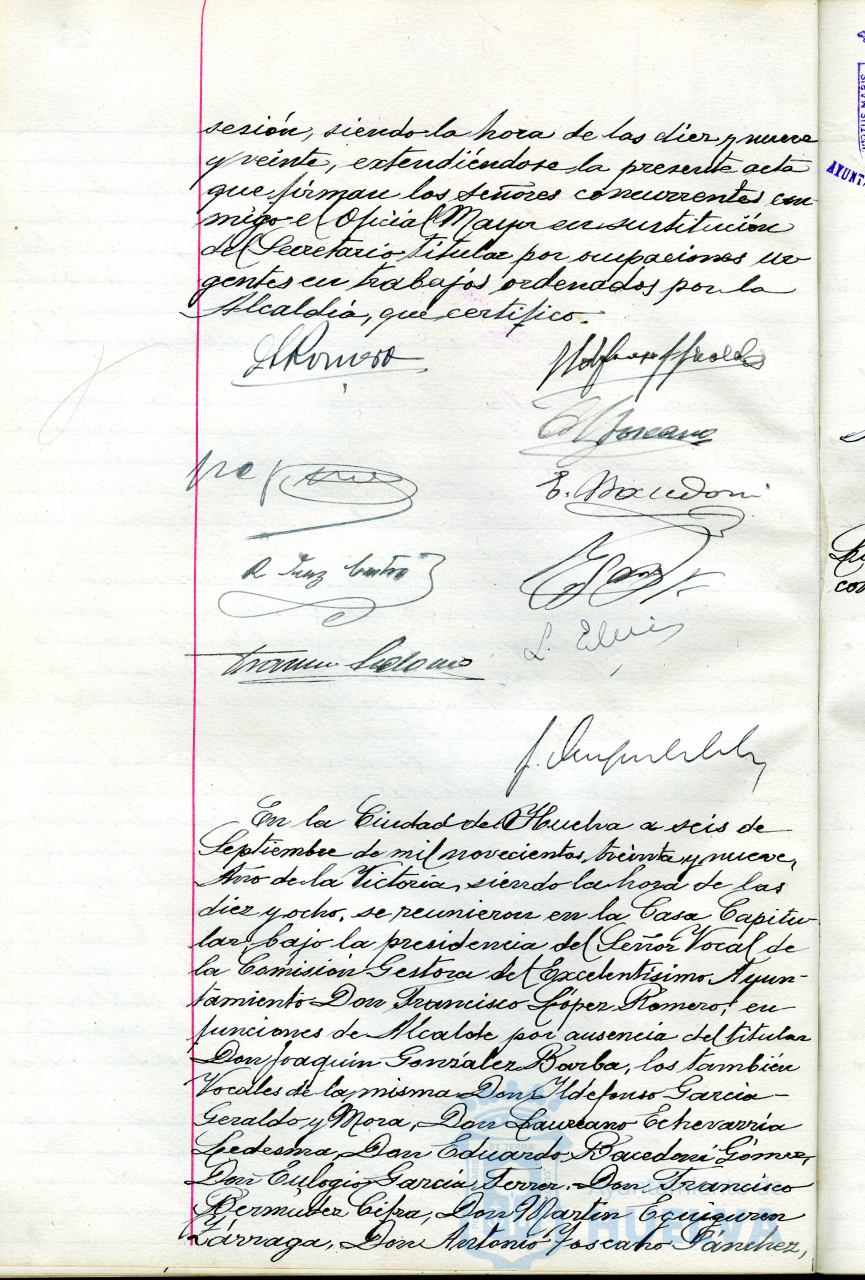 sesión, siendo la hora de las diez y nueve
y veinte, extendiéndose la presente acta
que firman los señores concurrentes con-
migo el Oficial Mayor en sustitución
del Secretario titular por ocupaciones ur-
gentes en trabajos ordenados por la
Alcaldía, que certifico.
Romero
Toscano
E. Bacedoni
En la Ciudad de Huelva a seis de
Septiembre de mil novecientos treinta y nueve,
Año de la Victoria, siendo la hora de las
diez y ocho, se reunieron en la Casa Capitu-
lar, bajo la presidencia del Señor Vocal de
la Comisión Gestora del Excelentísimo Ayun-
tamiento Don Francisco López Romero, en
funciones de Alcalde por ausencia del titular
Don Joaquín González Barba, los también
Vocales de la misma Don Ildefonso García-
Geraldo y Mora, Don Laureano Echevarría
Ledesma, Don Eduardo Bacedoni Gómez,
Don Eulogio García Ferrer, Don Francisco
Bermúdez Cifra, Don Martín Eguiguren
Zárraga, Don Antonio Toscano Sánchez,
Ayuntamiento de
HUELVA